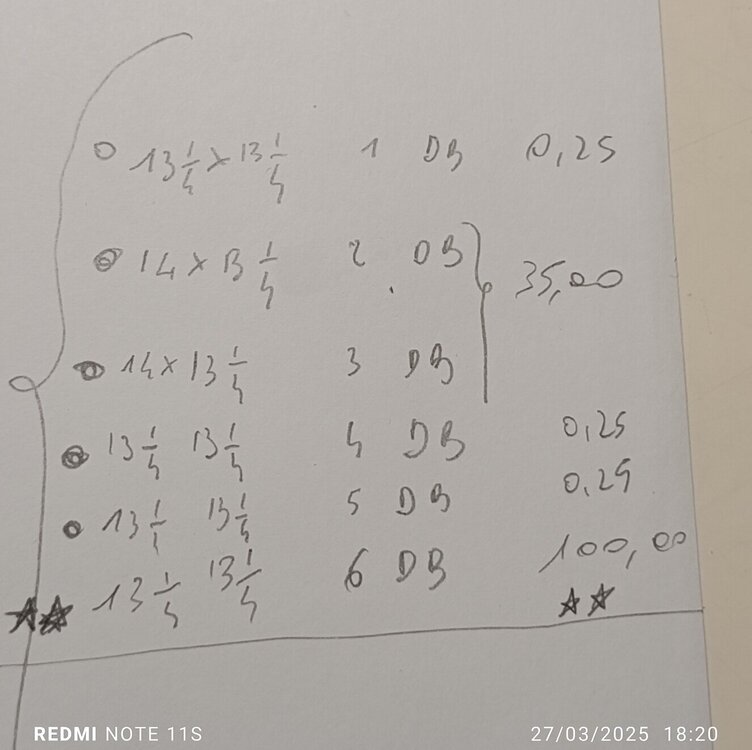 13 1/4 x 13 1/4 1 DB 0,25
14 x 13 1/4 2 DB
35,00
14 x 13 1/4 3 DB
13 1/4 13 1/4 4 DB 0,25
13 1/4 13 1/4 5 DB 0,25
13 1/4 13 1/4 6 DB 100,00
REDMI NOTE 11S 27/03/2025 18:20